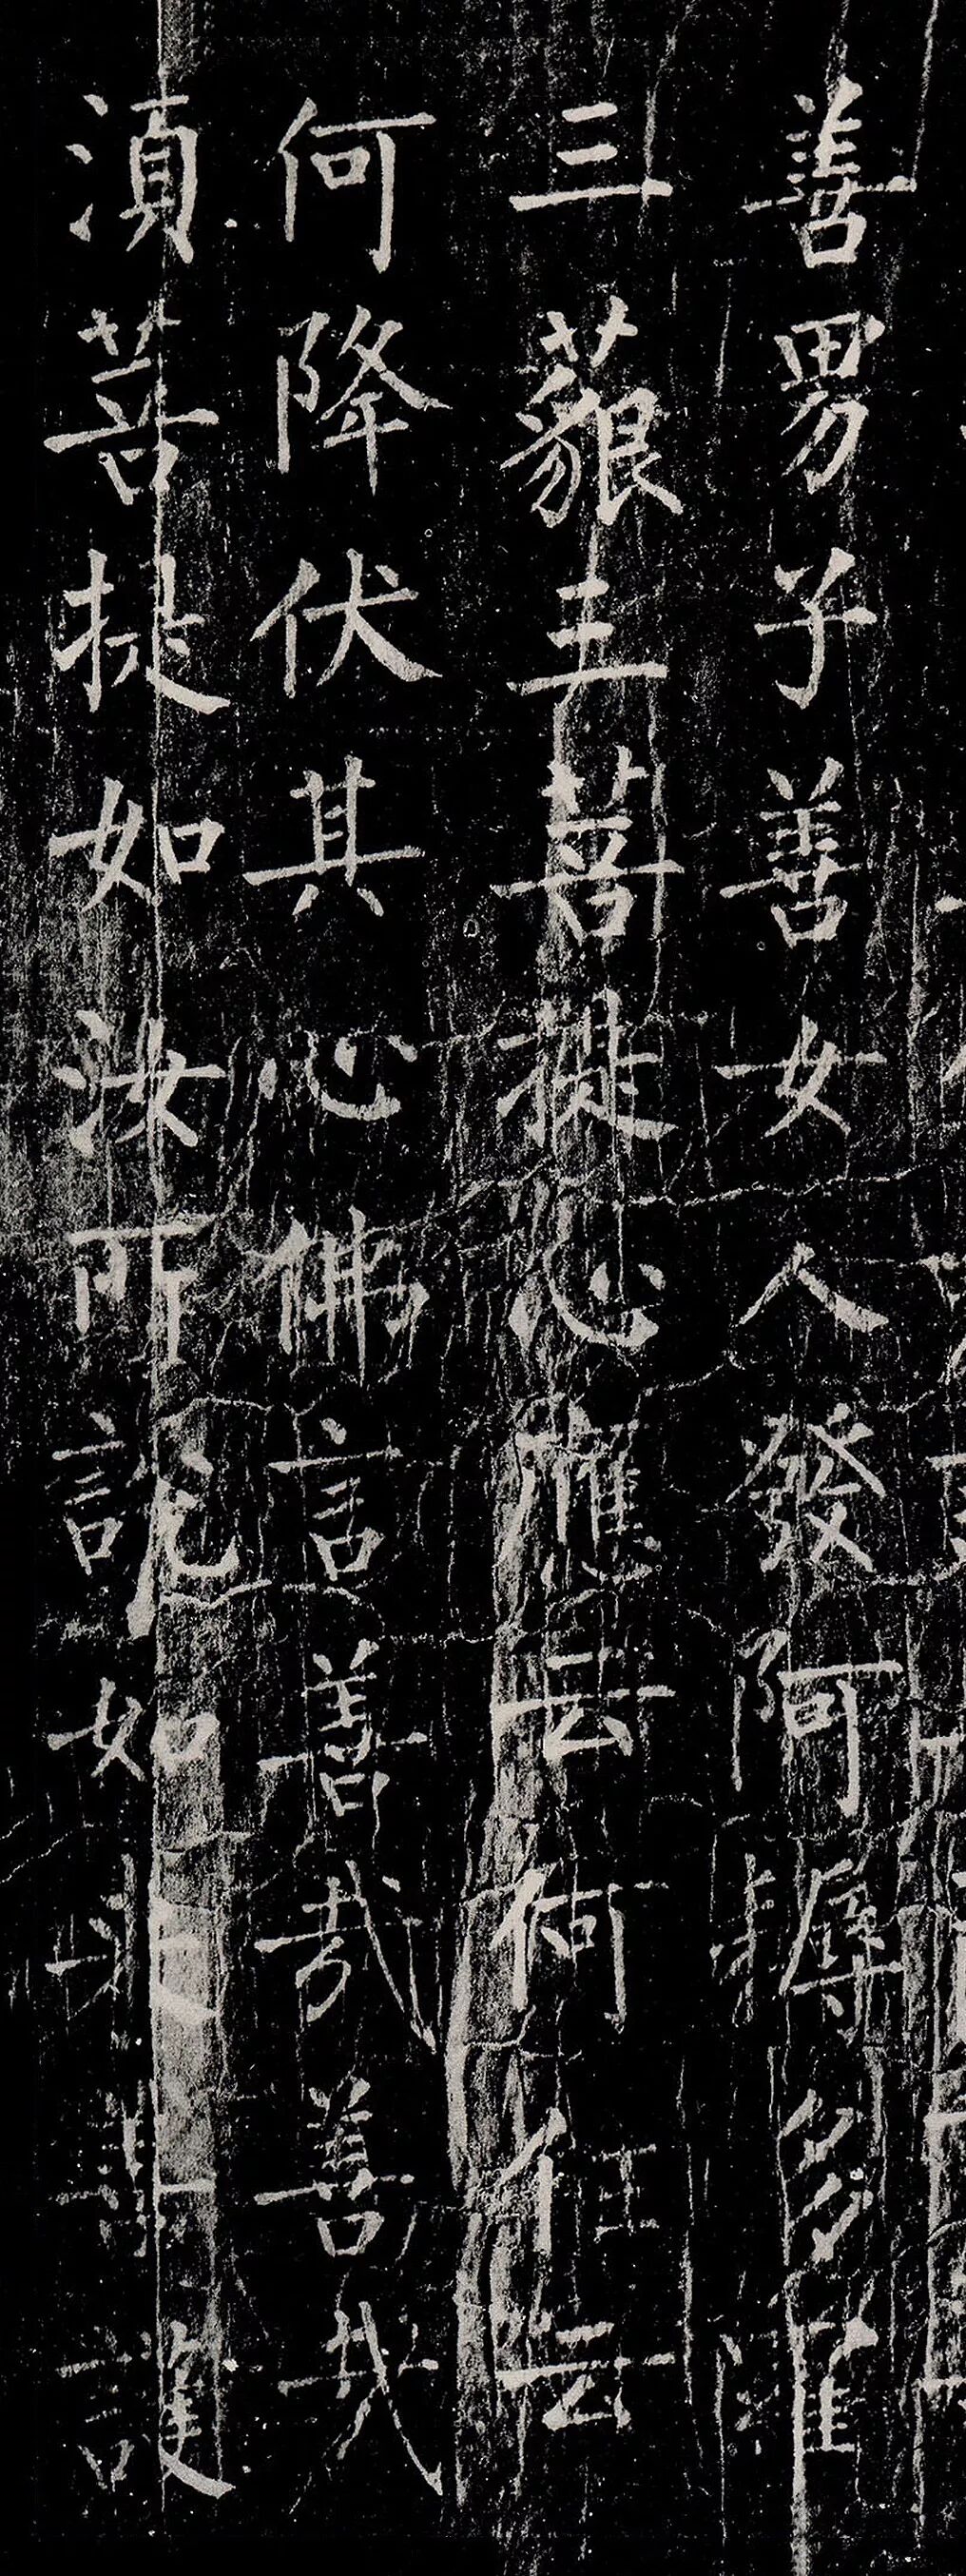 善男子善女人發阿耨多羅
三藐三菩提心應云何住云
何降伏其心佛言善哉善哉
湏菩提如汝所說如來善護